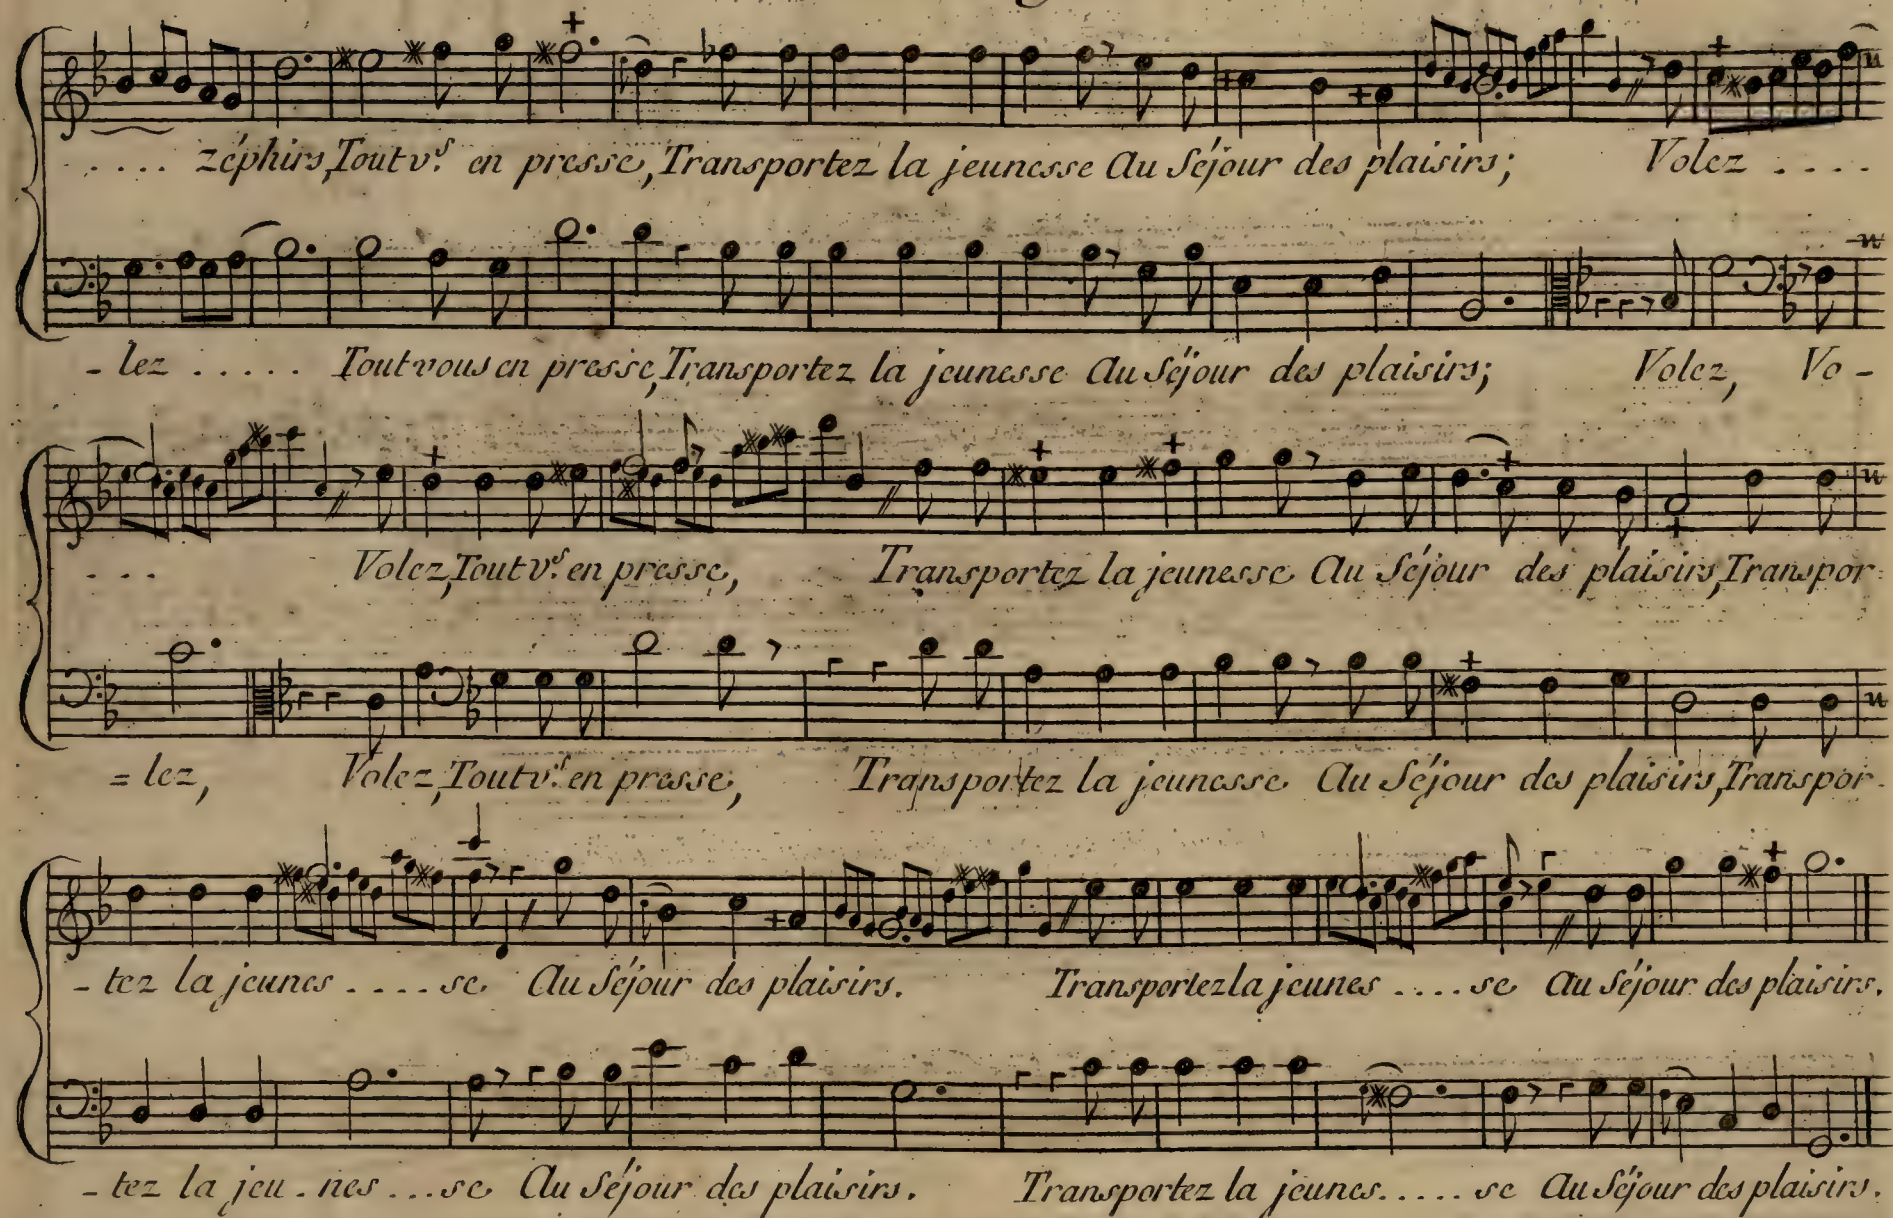 .... zéphirs, Tout vs. en presse, Transportez la jeunesse Au Séjour des plaisirs; Volez ....
- lez ..... Tout vous en presse, Transportez la jeunesse Au Séjour des plaisirs; Volez, Vo -
... Volez, Tout vs. en presse, Transportez la jeunesse Au Séjour des plaisirs, Transpor-
= lez, Volez, Tout vs. en presse, Transportez la jeunesse Au Séjour des plaisirs, Transpor-
- tez la jeunes .... se Au Séjour des plaisirs. Transportez la jeunes .... se Au Séjour des plaisirs.
- tez la jeu - nes ... se Au Séjour des plaisirs. Transportez la jeunes ..... se Au Séjour des plaisirs.